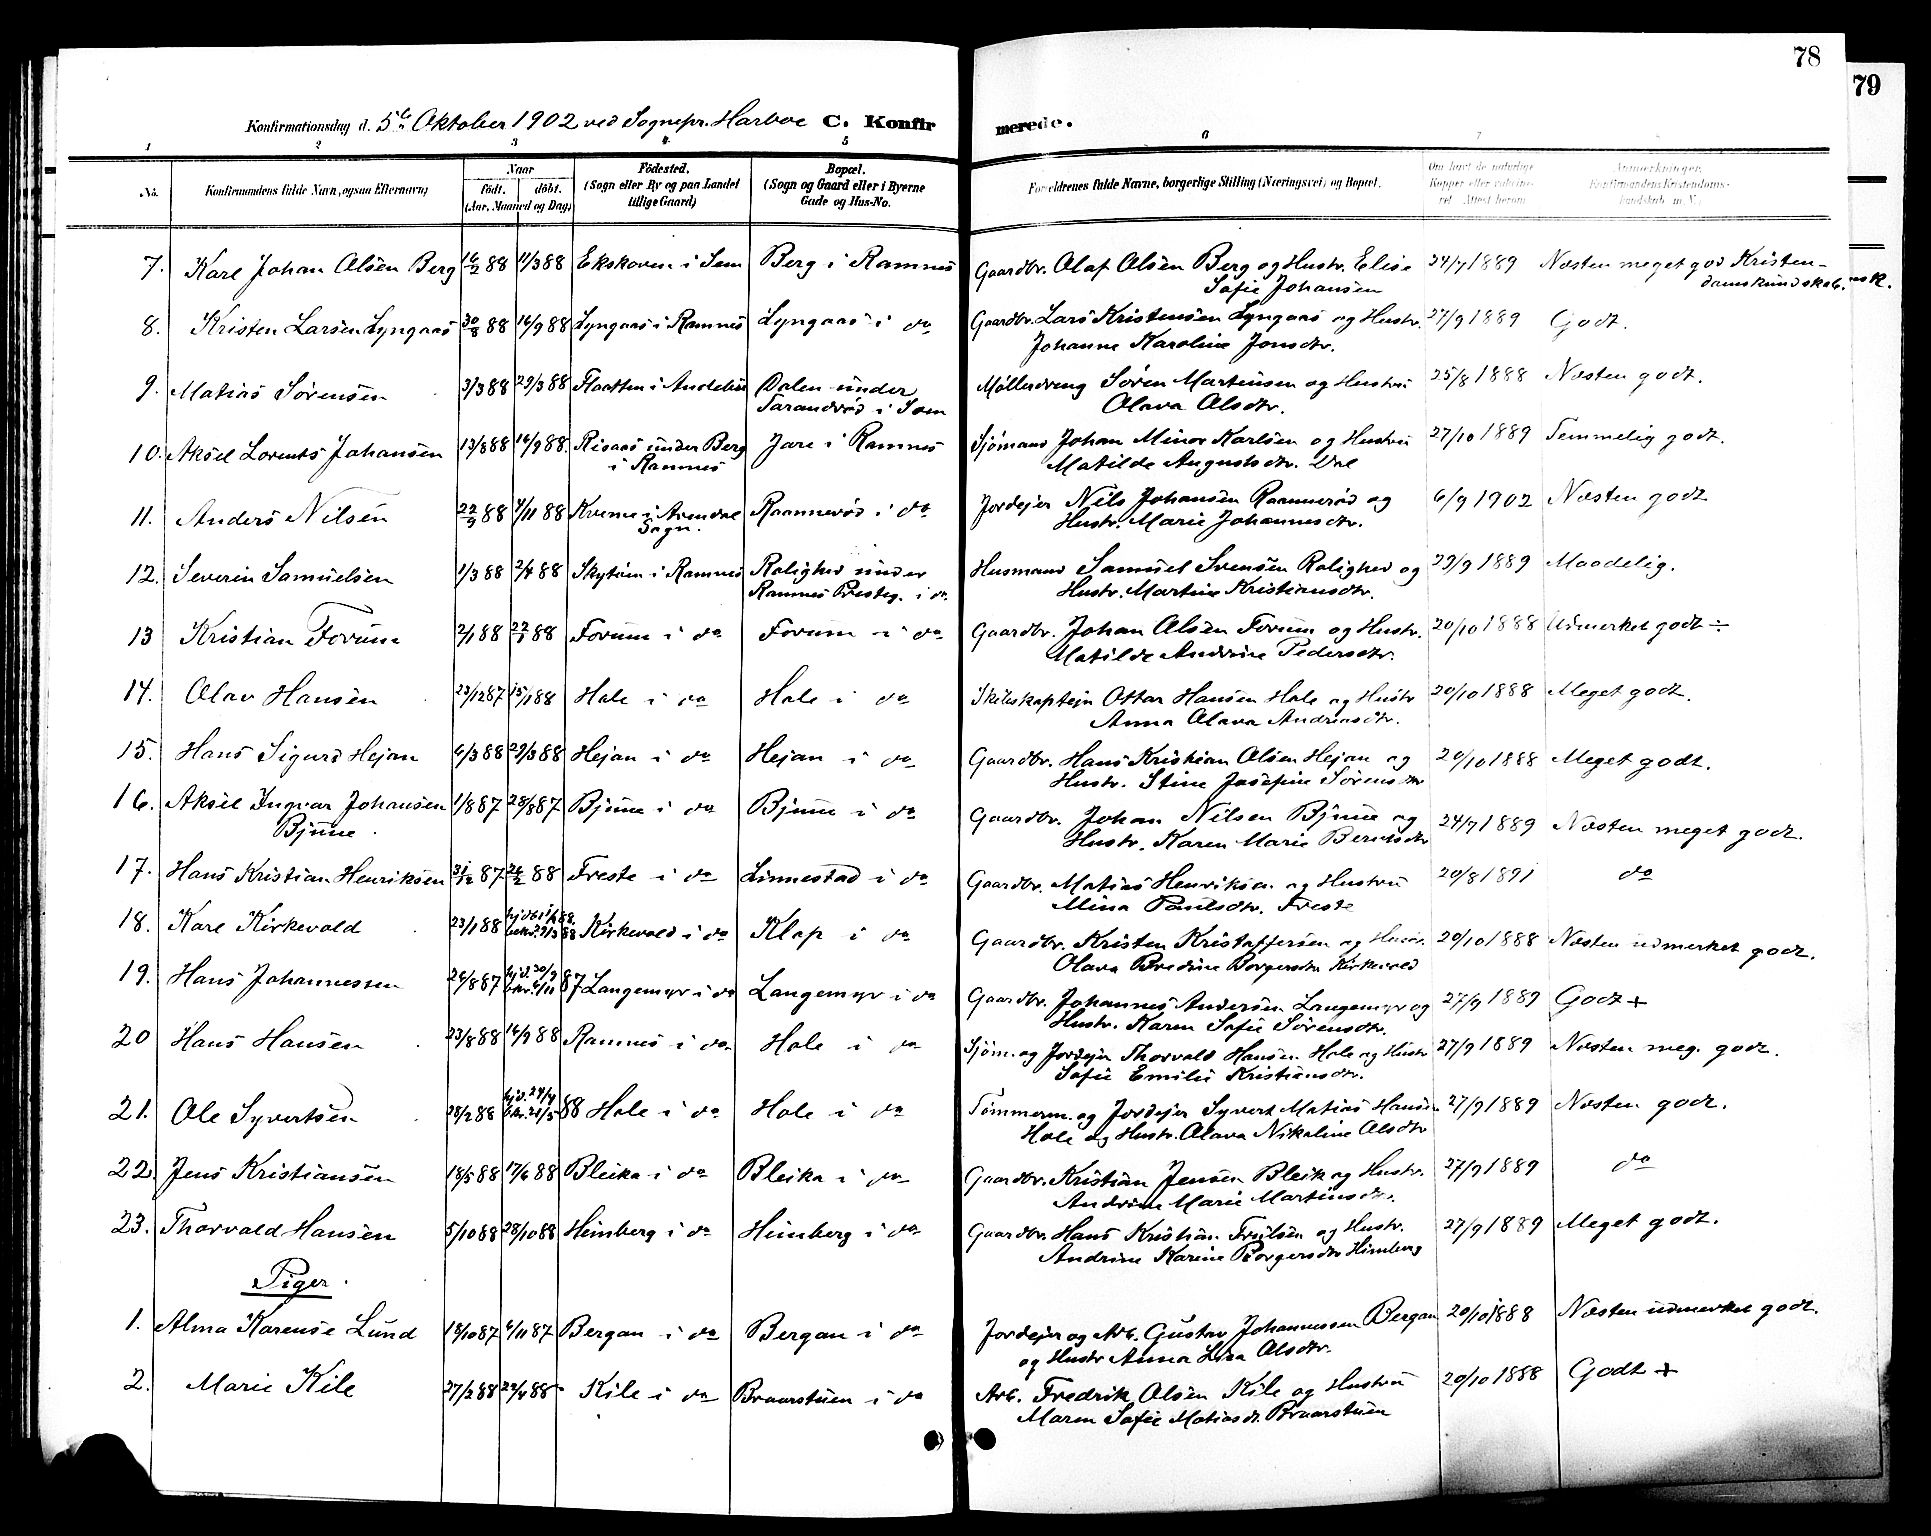 78
79
Konfirmationsdag d. 5te Oktober 1902 ved Sognepr. Harboe C. Konfirmerede.
1 2 3 4 5 6 7
No. Konfirmandens fulde Navn, ogsaa Efternavn) Naar født. døbt. (Aar, Maaned og Dag) Fødested. (Sogn eller By og paa Landet tillige Gaard) Bopæl. (Sogn og Gaard eller i Byerne Gade og Hus-No. Forældrenes fulde Navne, borgerlige Stilling (Næringsvei) og Bopæl. Om havt de naturlige Kopper eller vaccineret. Attest herom. Anmerkninger. Konfirmandens Kristendomskundskab m. V.)
7. Karl Johan Olsen Berg 16/2 88 11/3 88 Ekskoven i Sem Berg i Ramnes Gaardbr. Olaf Olsen Berg og Hustr. Elise 24/7 1889 Næsten meget god Kristen-
Sofie Johansen damskundskab.
8. Kristen Larsen Lyngaas 30/8 88 16/9 88 Lyngaas i Ramnes Lyngaas i do Gaardbr. Lars Kristensen Lyngaas og Hustr. 27/9 1889 Godt.
Johanne Karoline Jonsdtr.
9. Matias Sørensen 3/3 88 29/3 88 Flaatten i Andebu Dalen under Møllerdreng Søren Martinsen og Hustru 25/8 1888 Næsten godt.
Tarandrød i Sem Olava Olsdtr.
10. Aksel Lorents Johansen 13/8 88 16/9 88. Risaas under Berg Jare i Ramnes Sjømand Johan Minor Karlsen og Hustru 27/10 1889 Temmelig godt.
i Ramnes Matilde Augustsdtr. Dal
11. Anders Nilsen 22/9 88 4/11 88 Kverne i Arendal Raannerød i do Jordejer Nils Johansen Raannerød og 6/9 1902 Næsten godt
Sogn. Hustr. Marie Johannesdtr.
12. Severin Samuelsen 1/3 88 2/4 88 Skytøen i Ramnes Rolighed under Husmand Samuel Svensen Rolighed og 29/9 1889 Maadelig.
Ramnes Presteg. i do Hustr. Martine Kristiansdtr.
13 Kristian Forum 2/1 88 22/1 88 Forum i do Forum i do Gaardbr. Johan Olsen Forum og Hustr. 20/10 1888 Udmerket godt ÷
Matilde Andrine Pedersdtr.
14. Olav Hansen 23/12 87 15/1 88 Hole i do Hole i do Skibskaptejn Ottar Hansen Hole og Hustr 20/10 1888 Meget godt.
Anna Olava Andreasdtr.
15. Hans Sigurd Hejan 6/3 88 29/3 88 Hejan i do Hejan i do Gaardbr. Hans Kristian Olsen Hejan og 20/10 1888 Meget godt.
Hustr. Stine Josefine Sørensdtr
16. Aksel Ingvar Johansen 1/8 87 28/8 87 Bjune i do Bjune i do Gaardbr. Johan Nilsen Bjune og 24/7 1889 Næsten meget godt.
Bjune. Hustr. Karen Marie Berntsdtr
17. Hans Kristian Henriksen 31/12 87 26/2 88 Freste i do Linnestad i do Gaardbr. Matias Henriksen og Hustru 20/8 1891 do
Mina Paulsdtr. Freste
18. Karl Kirkevold 23/1 88 Kirkevold i do Klop i do Gaardbr. Kristen Kristoffersen og Hustr. 20/10 1888 Næsten udmerket godt.
Olava Bredine Borgersdtr Kirkevold
19. Hans Johannessen 26/8 87 hjd. 30/9 bekr. 6/11 87 Langemyr i do Langemyr i do Gaardbr. Johannes Andersen Langemyr og 27/9 1889 Godt +
Hustr. Karen Sofie Sørensdtr.
20 Hans Hansen 23/8 88 16/9 88 Ramnes i do Hole i do Sjøm. og Jordejer Thorvald Hansen Hole og Hustr 27/9 1889 Næsten meg. godt.
Sofie Emilie Kristiansdtr.
21. Ole Syvertsen 28/2 88 hjd. 24/4 bekr. 21/5 88 Hole i do Hole i do Tømmerm. og Jordejer Syvert Matias Hansen 27/9 1889 Næsten godt.
Hole og Hustr. Olava Nikoline Olsdtr
22. Jens Kristiansen 18/5 88 17/6 88 Bleika i do Bleika i do Gaardbr. Kristian Jensen Bleik og Hustr. 27/9 1889 do
Andrine Marie Martinsdtr.
23. Thorvald Hansen 5/10 88 28/10 88 Heimberg i do Heimberg i do Gaardbr. Hans Kristian Trulsen og Hustr. 27/9 1889 Meget godt.
Andrine Karine Borgersdtr Himberg
Piger.
1. Alma Karense Lund 18/10 87 6/11 87 Bergan i do Bergan i do Jordejer og Arb. Gustav Johannessen Bergan 20/10 1888 Næsten udmerket godt.
og Hustr Anna Lisa Olsdtr.
2. Marie Kile 27/2 88 22/4 88 Kile i do Braarstuen i do Arb. Fredrik Olsen Kile og Hustru 20/10 1888 Godt +
Maren Sofie Matiasdt. Braarstuen